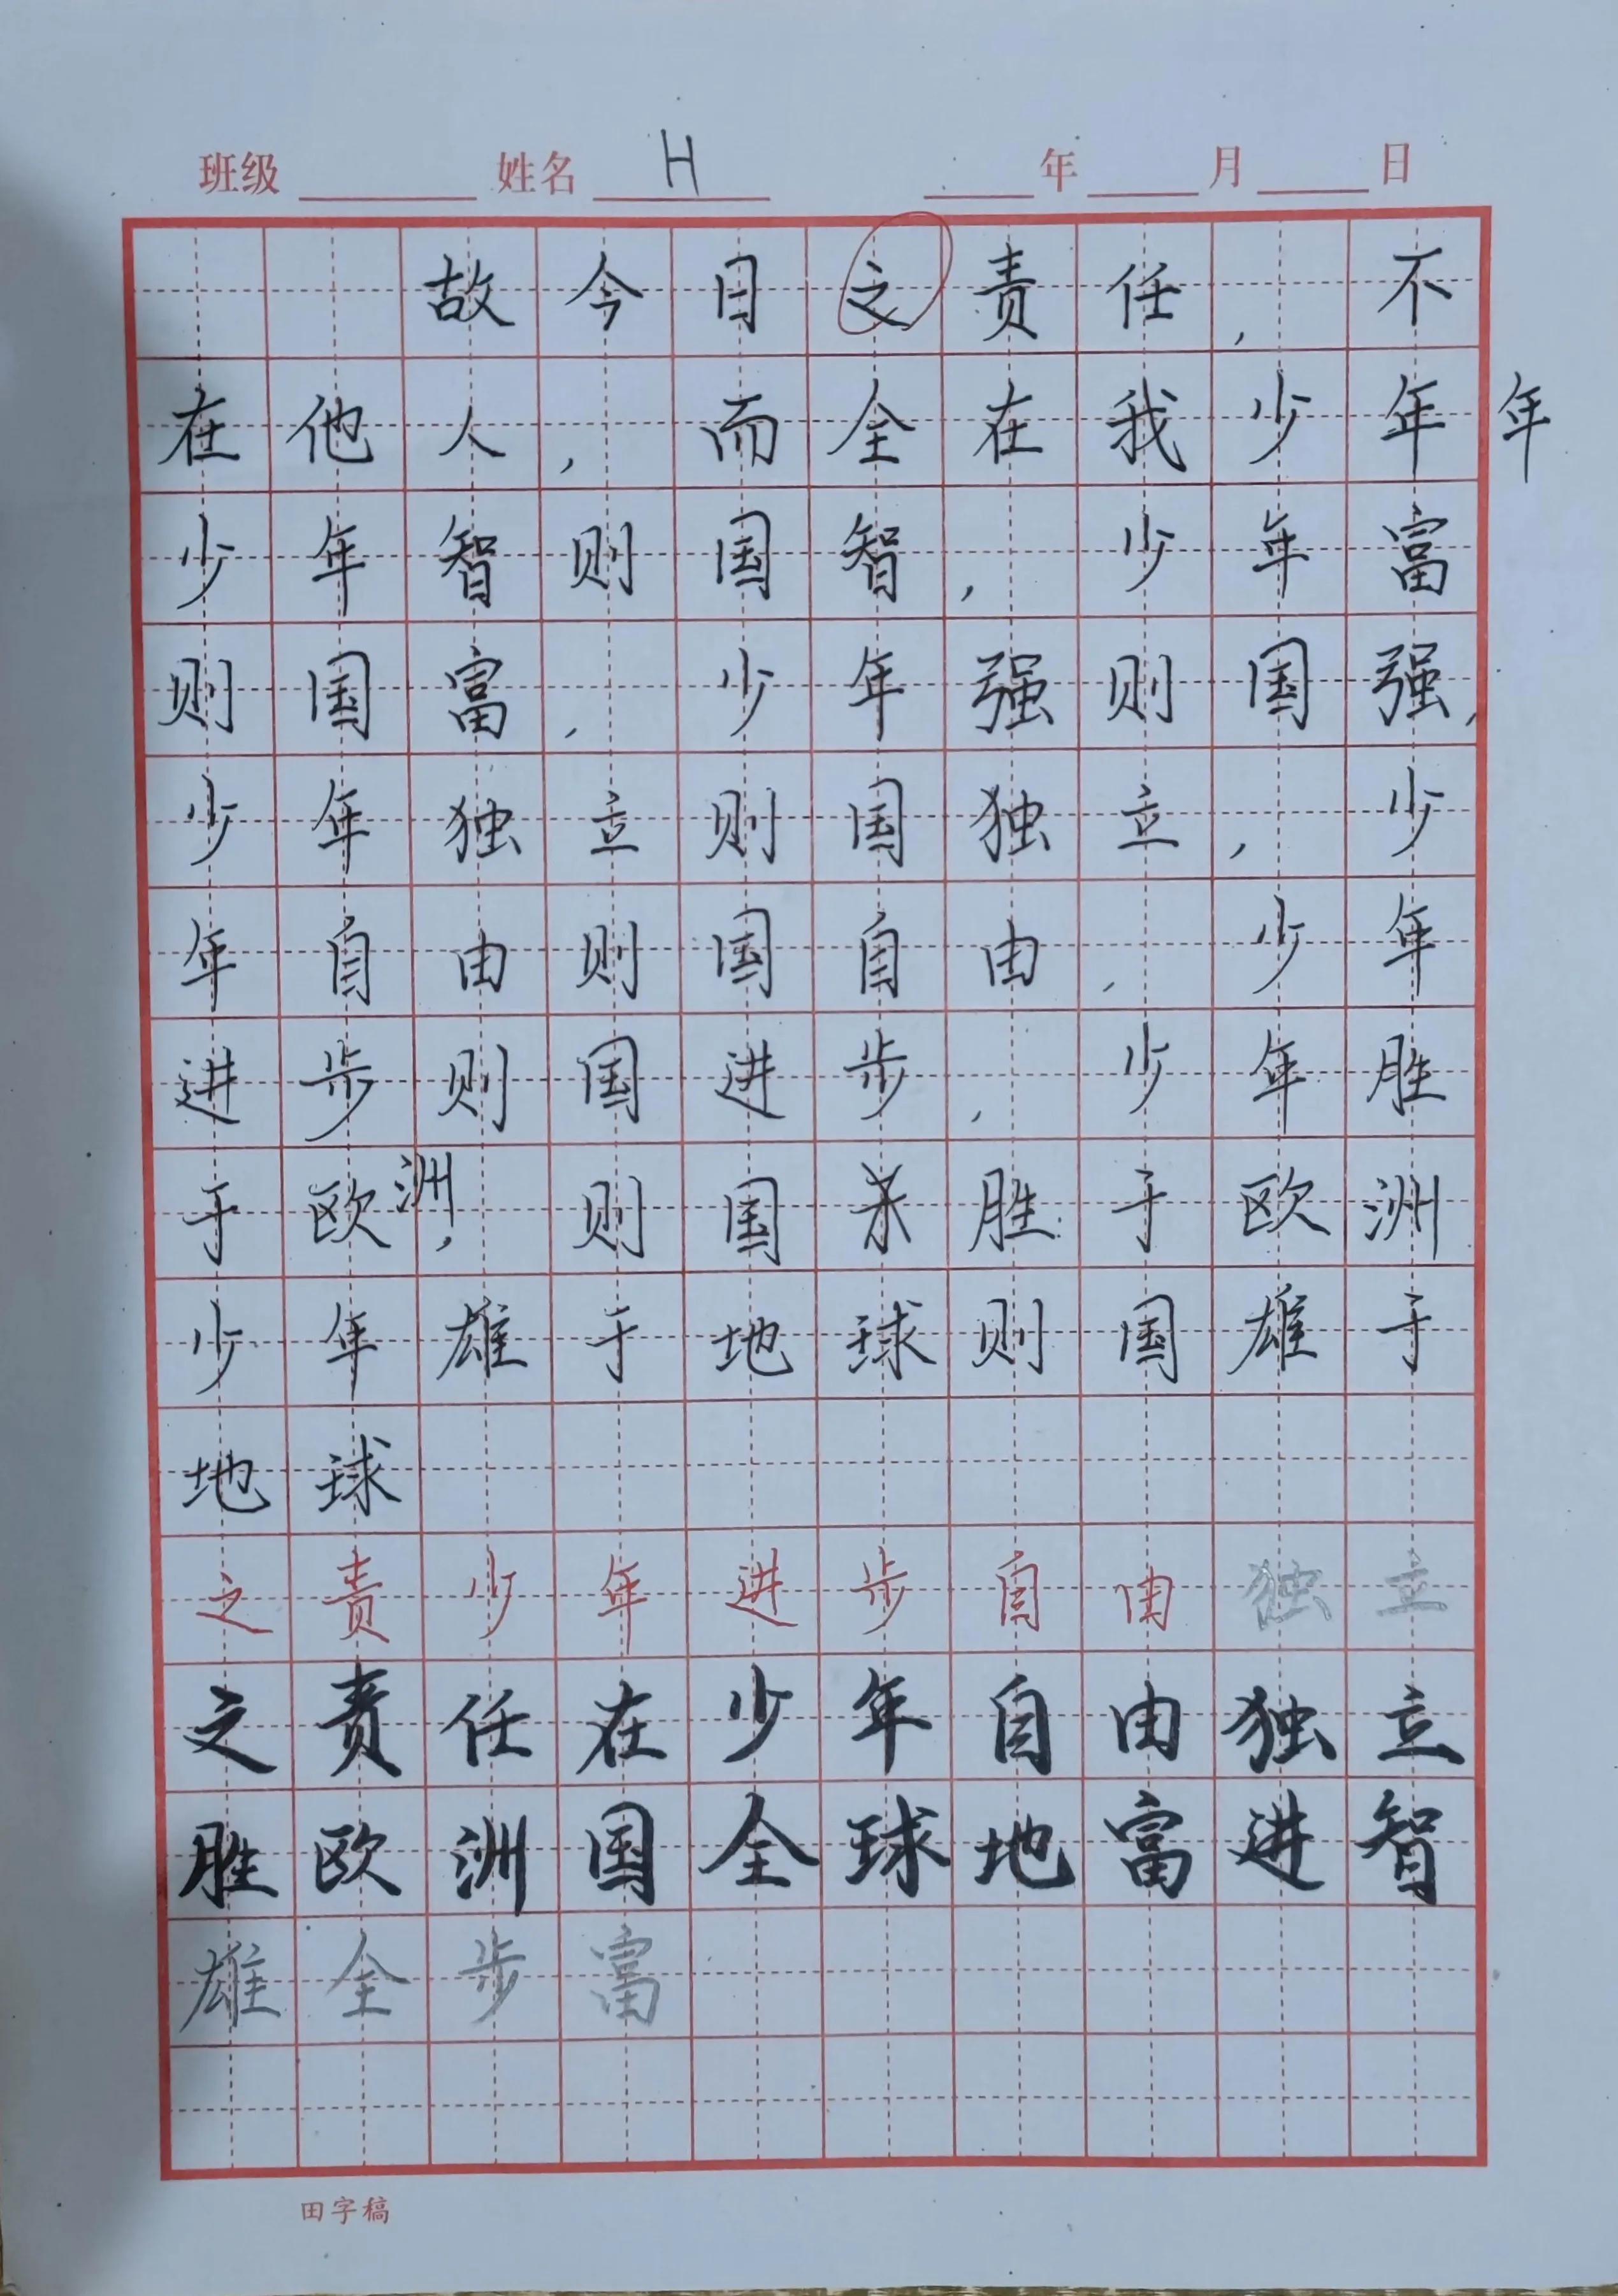 班级 姓名 H 年 月 日
故今日之责任,不
在他人,而全在我少年年
少年智则国智,少年富
则国富,少年强则国强,
少年独立则国独立,少
年自由则国自由,少年
进步则国进步,少年胜
于欧洲,则国胜于欧洲
少年雄于地球则国雄于
地球
之责少年进步自由独立
之责任在少年自由独立
胜欧洲国全球地富进智
雄全步富
田字稿